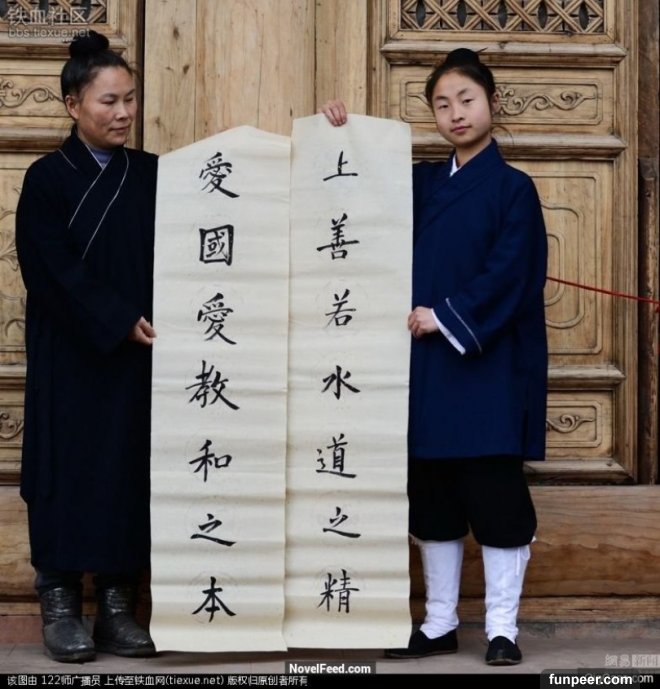 铁血社区
bbs.tiexue.net
上善若水道之精
愛國愛教和之本
NovelFeed.com
该图由 122师广播员 上传至铁血网(tiexue.net) 版权归原创者所有
funpeer.com